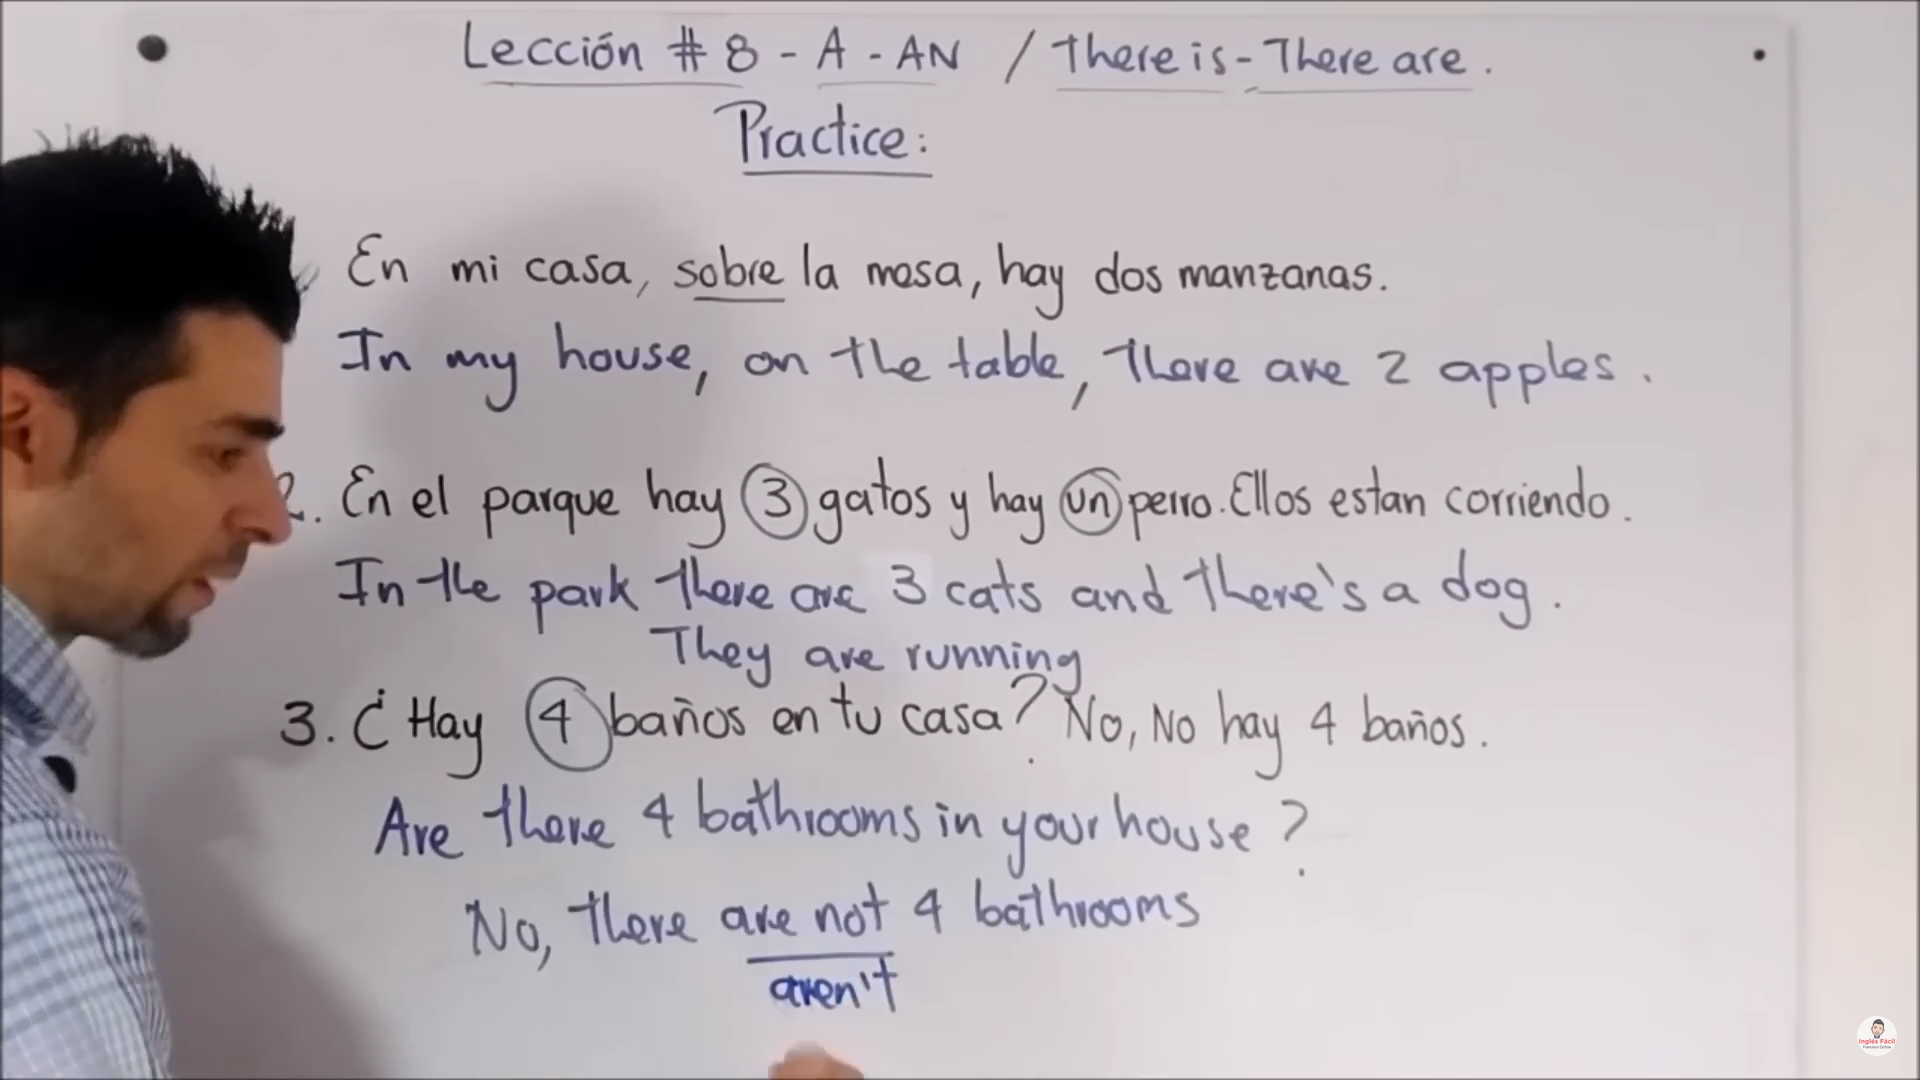 Lección # 8 - A - AN / There is - There are.
Practice:
En mi casa, sobre la mesa, hay dos manzanas.
In my house, on the table, there are 2 apples.
2. En el parque hay 3 gatos y hay un perro. Ellos estan corriendo.
In the park there are 3 cats and there's a dog.
They are running
3. ¿Hay 4 baños en tu casa? No, No hay 4 baños.
Are there 4 bathrooms in your house?
No, there are not 4 bathrooms
aren't
Inglés Fácil